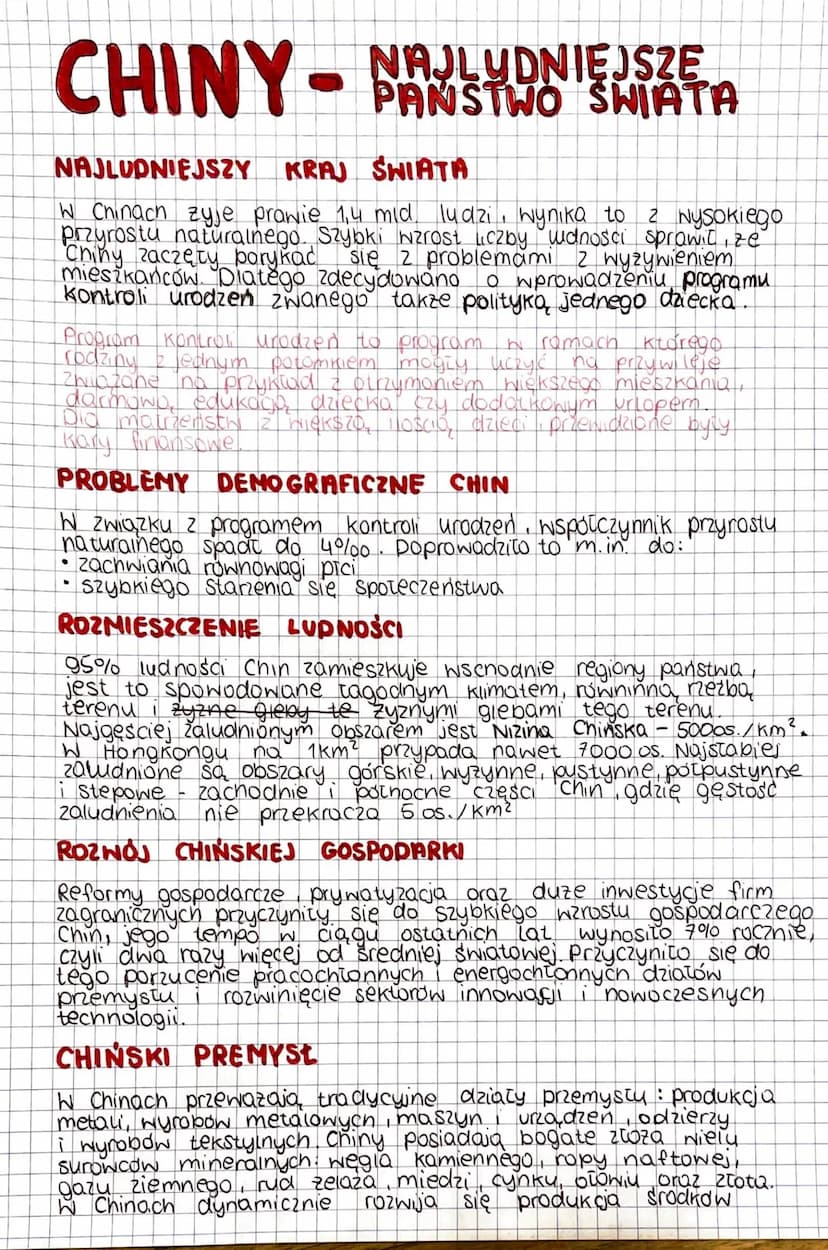 CHINY - NAJLUDNIEJSZE
PAŃSTWO ŚWIATA
NAJLUDNIEJSZY KRAJ ŚWIATA
W Chinach żyje prawie 1,4 mld. ludzi, wynika to z wysokiego
przyrostu naturalnego. Szybki wzrost liczby ludności sprawił, że
Chiny zaczęły borykać się z problemami z wyżywieniem
mieszkańców. Dlatego zdecydowano o wprowadzeniu programu
kontroli urodzeń zwanego także polityką jednego dziecka.
Program kontroli urodzeń to program w ramach którego
rodziny z jednym potomkiem mogły liczyć na przywileje
związane na przykład z otrzymaniem większego mieszkania,
darmową edukacją dziecka czy dodatkowym urlopem.
Dla małżeństw z większą ilością dzieci przewidziane były
kary finansowe.
PROBLEMY DEMOGRAFICZNE CHIN
W związku z programem kontroli urodzeń, współczynnik przyrostu
naturalnego spadł do 4‰. Doprowadziło to m.in. do:
• zachwiania równowagi płci
• szybkiego starzenia się społeczeństwa
ROZMIESZCZENIE LUDNOŚCI
95% ludności Chin zamieszkuje wschodnie regiony państwa,
jest to spowodowane łagodnym klimatem, równinną rzeźbą
terenu i żyzne gleby te żyznymi glebami tego terenu.
Najgęściej zaludnionym obszarem jest Nizina Chińska - 500os./km².
W Hongkongu na 1km² przypada nawet 7000 os. Najsłabiej
zaludnione są obszary górskie, wyżynne, pustynne, półpustynne
i stepowe - zachodnie i północne części Chin, gdzie gęstość
zaludnienia nie przekracza 5 os./km²
ROZWÓJ CHIŃSKIEJ GOSPODARKI
Reformy gospodarcze, prywatyzacja oraz duże inwestycje firm
zagranicznych przyczyniły się do szybkiego wzrostu gospodarczego
Chin, jego tempo w ciągu ostatnich lat wynosiło 7% rocznie,
czyli dwa razy więcej od średniej światowej. Przyczyniło się do
tego porzucenie pracochłonnych i energochłonnych działów
przemysłu i rozwinięcie sektorów innowacji i nowoczesnych
technologii.
CHIŃSKI PREMYSŁ
W Chinach przeważają tradycyjne działy przemysłu: produkcja
metali, wyrobów metalowych, maszyn i urządzeń, odzierzy
i wyrobów tekstylnych. Chiny posiadają bogate złoża wielu
surowców mineralnych: węgla kamiennego, ropy naftowej,
gazu ziemnego, rud żelaza, miedzi, cynku, ołowiu oraz złota.
W Chinach dynamicznie rozwija się produkcja środków